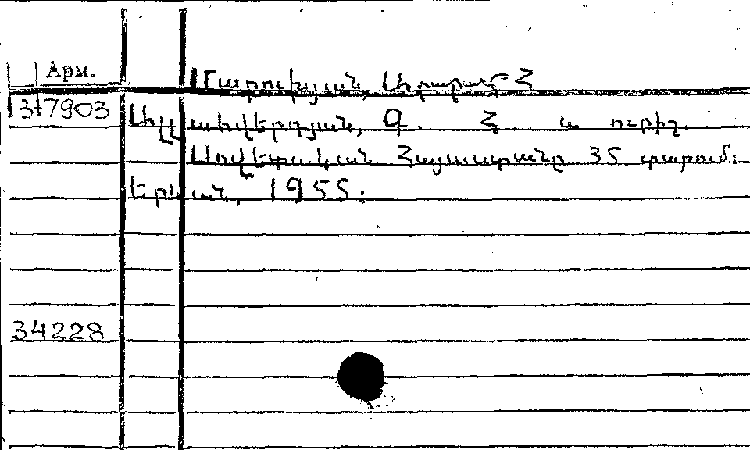 Арм.
Մարուխյան, Արարատ Հ
37903
Ալլահվերդյան, Գ. Հ. և ուրիշ.
Սովետական Հայաստանը 35 տարում:
Երևան, 1955:
34228